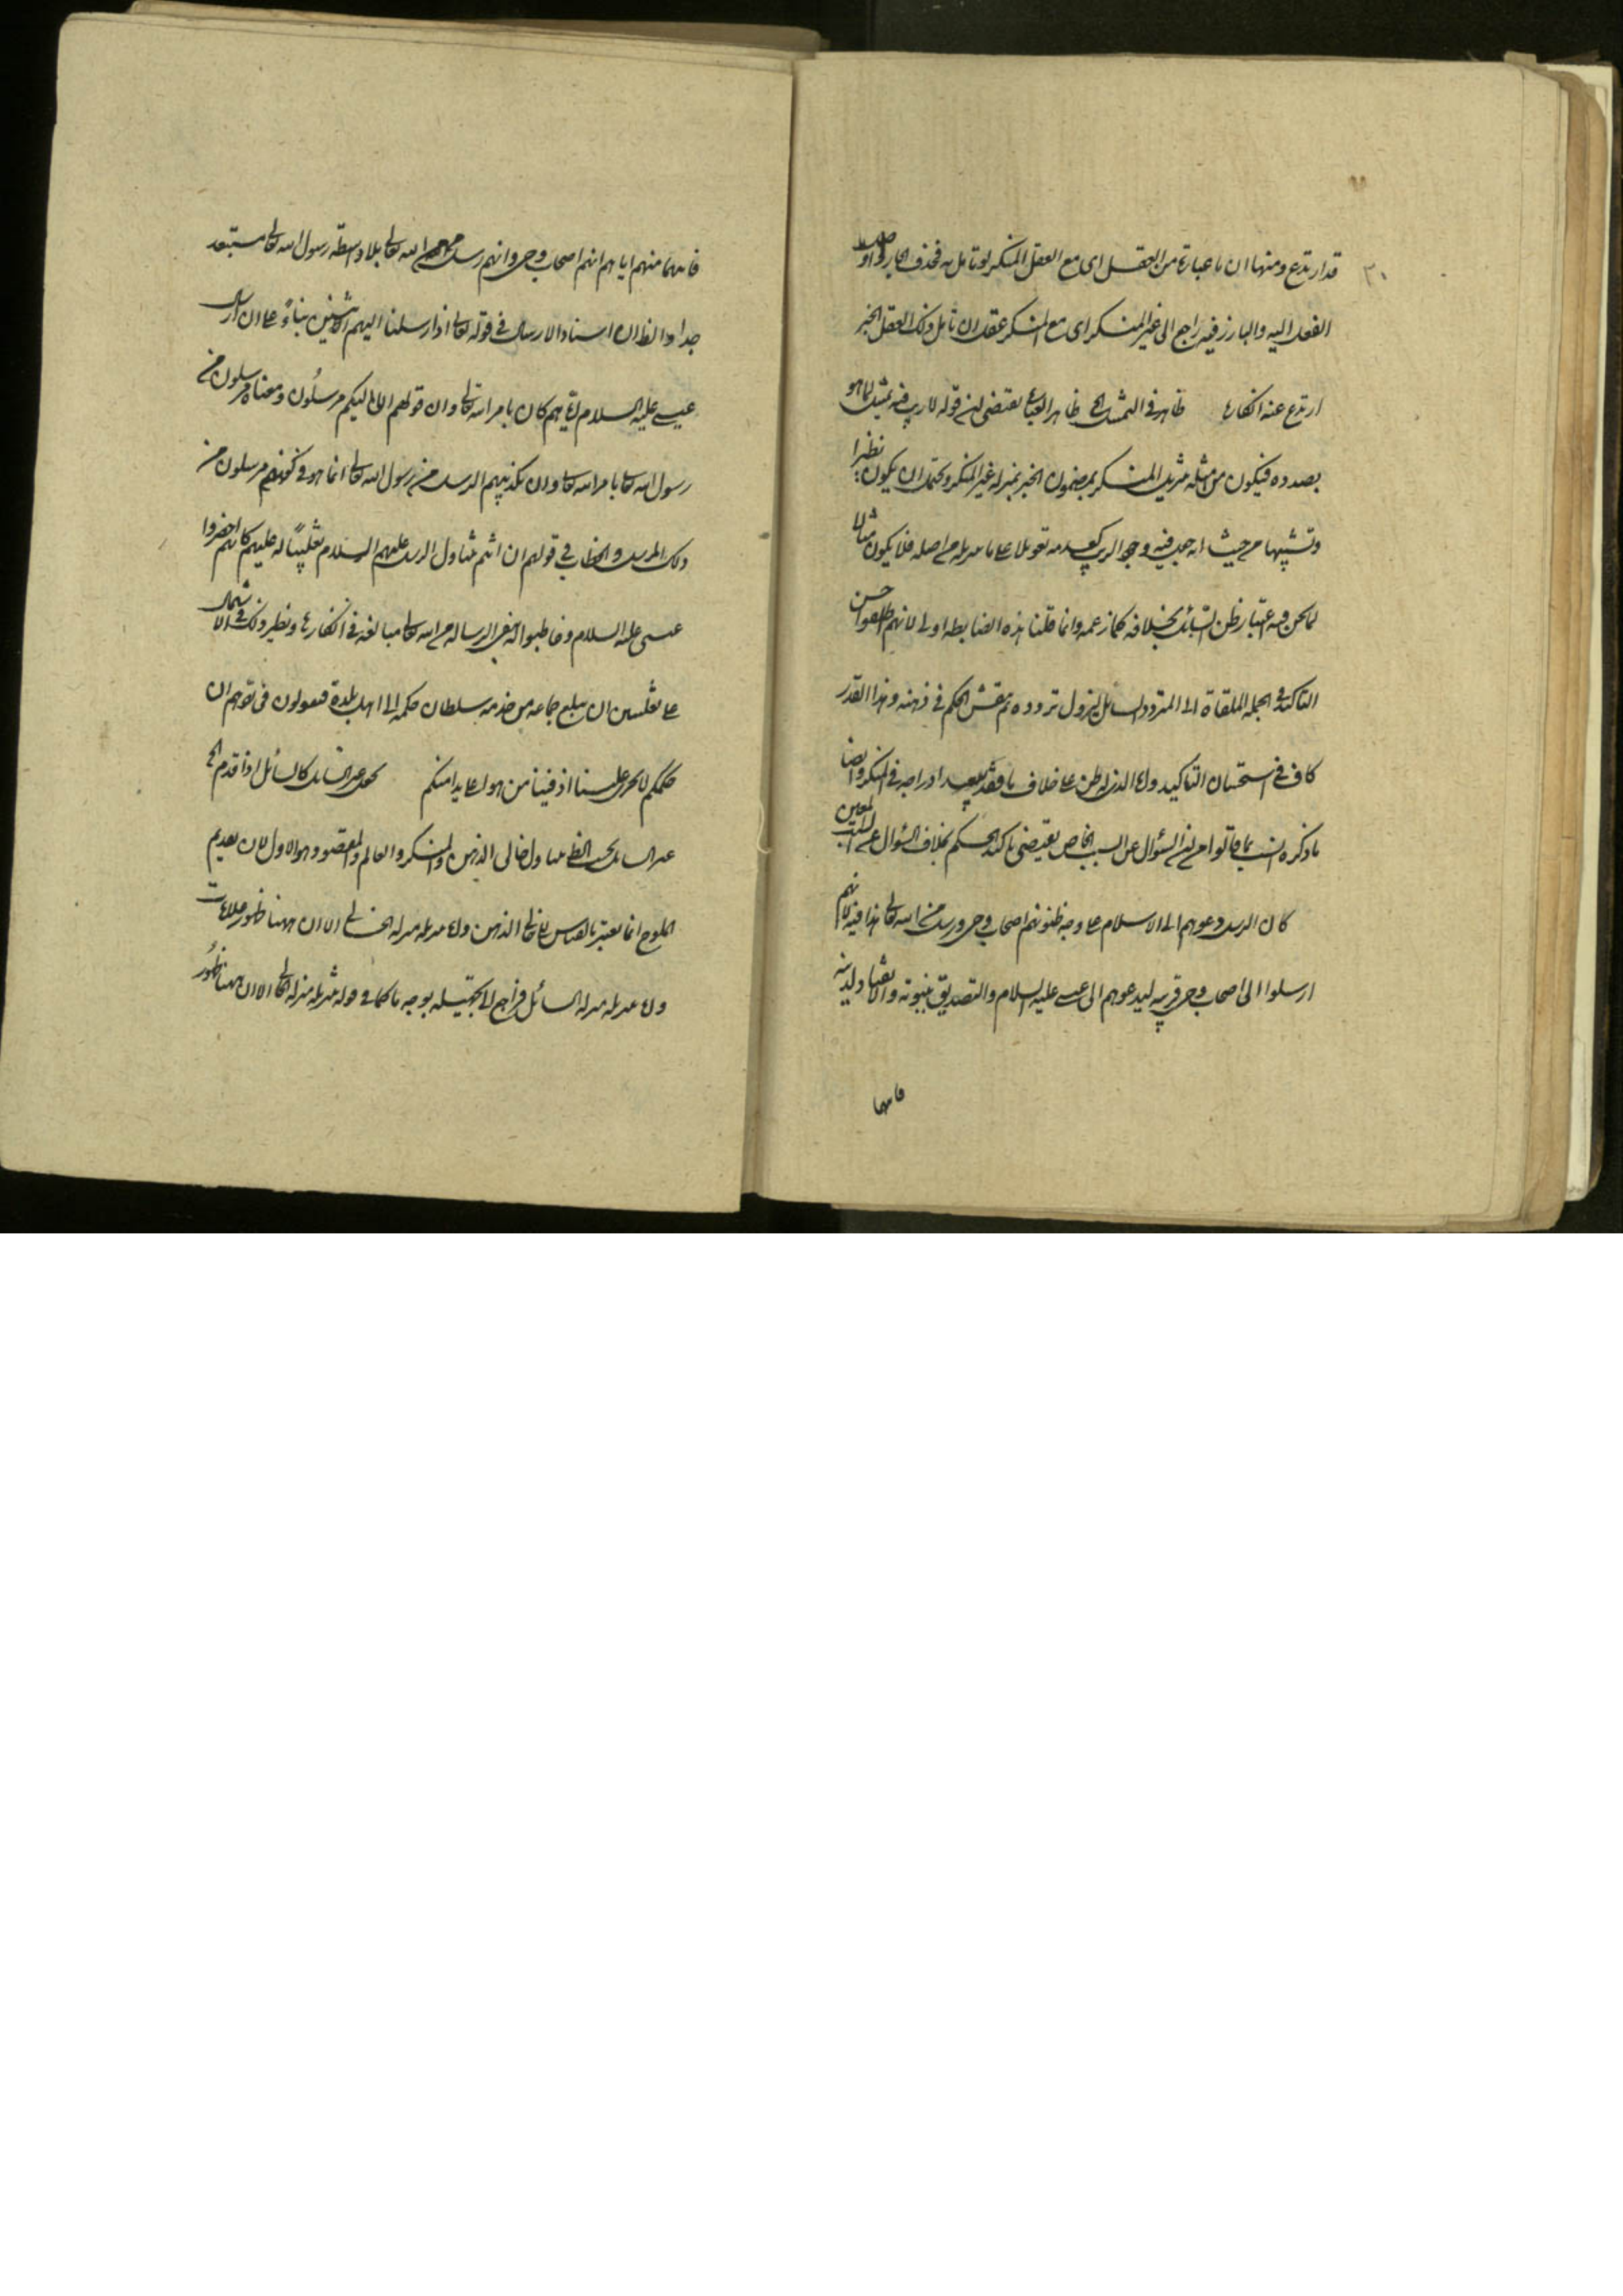 ٣٠
قد ارتدع ومنها ان ما عبارة من العقل اى مع العقل المنكر لو تأمل به فحذف الجار واوصل
الفعل اليه والبارز فيه راجع الى غير المنكر اى مع المنكر عقل ان تأمل ذلك العقل الخبر
ارتدع عنه انكاره ظاهر فى التمثيل الخ ظاهر العبارة يقتضى ان قوله لا ريب فيه تمثيل لما هو
بصدده فيكون من امثلة تنزيل المنكر بمضمون الخبر بمنزلة غير المنكر ويحتمل ان يكون نظيرا
وتشبيها من حيث انه جعل فيه وجود الريب كعدمه تعويلا على ما يزيله من اصله فلا يكون مثالا
لما نحن فيه اعتبار ظن السائل بخلافه كما زعمه وانما قلنا هذه الضابطة اولى لانهم اطلقوا حسن
التاكيد فى الجملة الملقاة الى المتردد السائل ليزول تردده وينتقش الحكم فى ذهنه وهذا القدر
كاف فى استحسان التاكيد واما الذى له ظن على خلاف ما فقد يعد ادراجه فى المنكر وايضا
ما ذكره انسب بما قالوا من ان السؤال عن السبب الخاص يقتضى تاكيد الحكم بخلاف السؤال عن السبب المعين
كان الرسل دعوهم الى الاسلام على وجه ظنوا انهم اصحاب وحى ورسل من الله تعالى هذا فيه لانهم
ارسلوا الى اصحاب قرية ليدعوهم الى عيسى عليه السلام والتصديق بنبوته والانقياد لدينه
فايها
فايهامنهم اياهم انهم اصحاب وحى وانهم رسل من الله تعالى بلا واسطة رسول الله تعالى مستبعد
جدا والظ ان اسناد الارسال فى قوله تعالى اذ ارسلنا اليهم اثنين بناءً على ان ارسال
عيسى عليه السلام اياهم كان بامر الله تعالى وان قولهم انا اليكم مرسلون ومعناه مرسلون من
رسول الله تعالى بامر الله تعالى وان تكذيبهم الرسل من رسول الله تعالى انما هو فى كونهم مرسلون من
ذلك المرسل والخطاب فى قولهم ان انتم متناول الرسل عليهم السلام تغليبًا له عليهم كانهم احضروا
عيسى عليه السلام وخاطبوا له بنفى الرسالة من الله تعالى مبالغة فى انكارها ونظير ذلك فى الاشتمال
على تغليبين ان يبلغ جماعة من خدمة سلطان حكمه الى اهل بلدة فيقولون فى توهم ان
حكمكم لا يجرى علينا اذ فينا من هو اعلى يدا منكم يجعل غير السائل كالسائل اذا قدم الخ
غير السائل بحسب الظ متناول لخالى الذهن والمنكر والعالم والمقصود هو الاول لان تقديم
الملوح انما يعتبر بالقياس لخالى الذهن واما تنزيله منزلة الخالى الا ان ههنا ظهور علامات
واما تنزيله منزلة السائل فراجع الى تجهيله بوجه ما كما فى قوله تنزيله منزلة الخالى الا ان ههنا ظهور